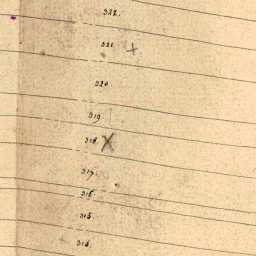 322.
321 x
320
319
318 X
317
316.
315.
314.